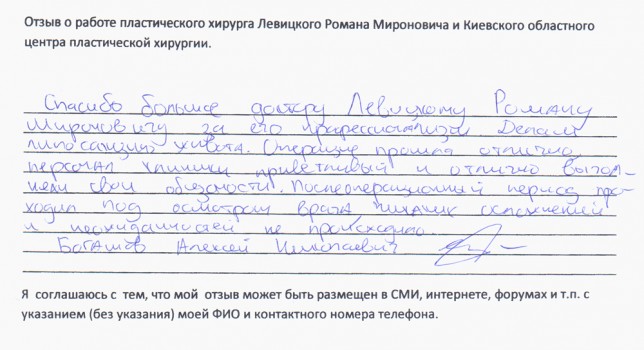 Отзыв о работе пластического хирурга Левицкого Романа Мироновича и Киевского областного
центра пластической хирургии.
Спасибо большое доктору Левицкому Роману
Мироновичу за его профессионализм. Делал
липосакцию живота. Операция прошла отлично,
персонал клиники приветливый и отлично выпол-
няли свои обязности. Послеоперационный период про-
ходил под осмотром врача, никаких осложнений
и неожиданностей не происходило.
Алексей Николаевич
Я соглашаюсь с тем, что мой отзыв может быть размещен в СМИ, интернете, форумах и т.п. с
указанием (без указания) моей ФИО и контактного номера телефона.